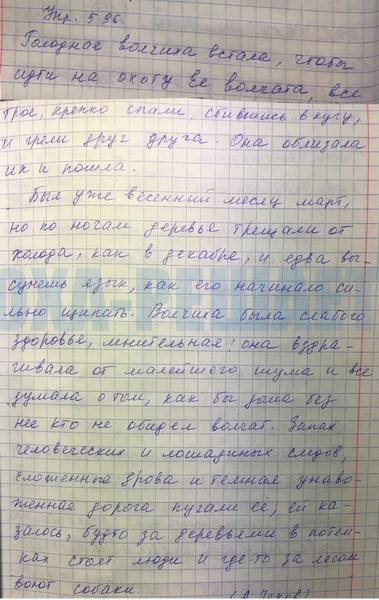 Упр. 596
Голодная волчиха встала, чтобы
идти на охоту. Её волчата, все
трое, крепко спали, сбившись в кучу,
и грели друг друга. Она облизала
их и пошла.
Был уже весенний месяц март,
но по ночам деревья трещали от
холода, как в декабре, и едва вы-
сунешь язык, как его начинало си-
льно щипать. Волчиха была слабого
здоровья, мнительная; она вздра-
гивала от малейшего шума и все
думала о том, как бы дома без
нее кто не обидел волчат. Запах
человеческих и лошадиных следов,
сложенные дрова и темная унаво-
женная дорога пугали её; ей ка-
залось, будто за деревьями в потем-
ках стоят люди и где-то за лесом
воют собаки.
(А. Чехов)